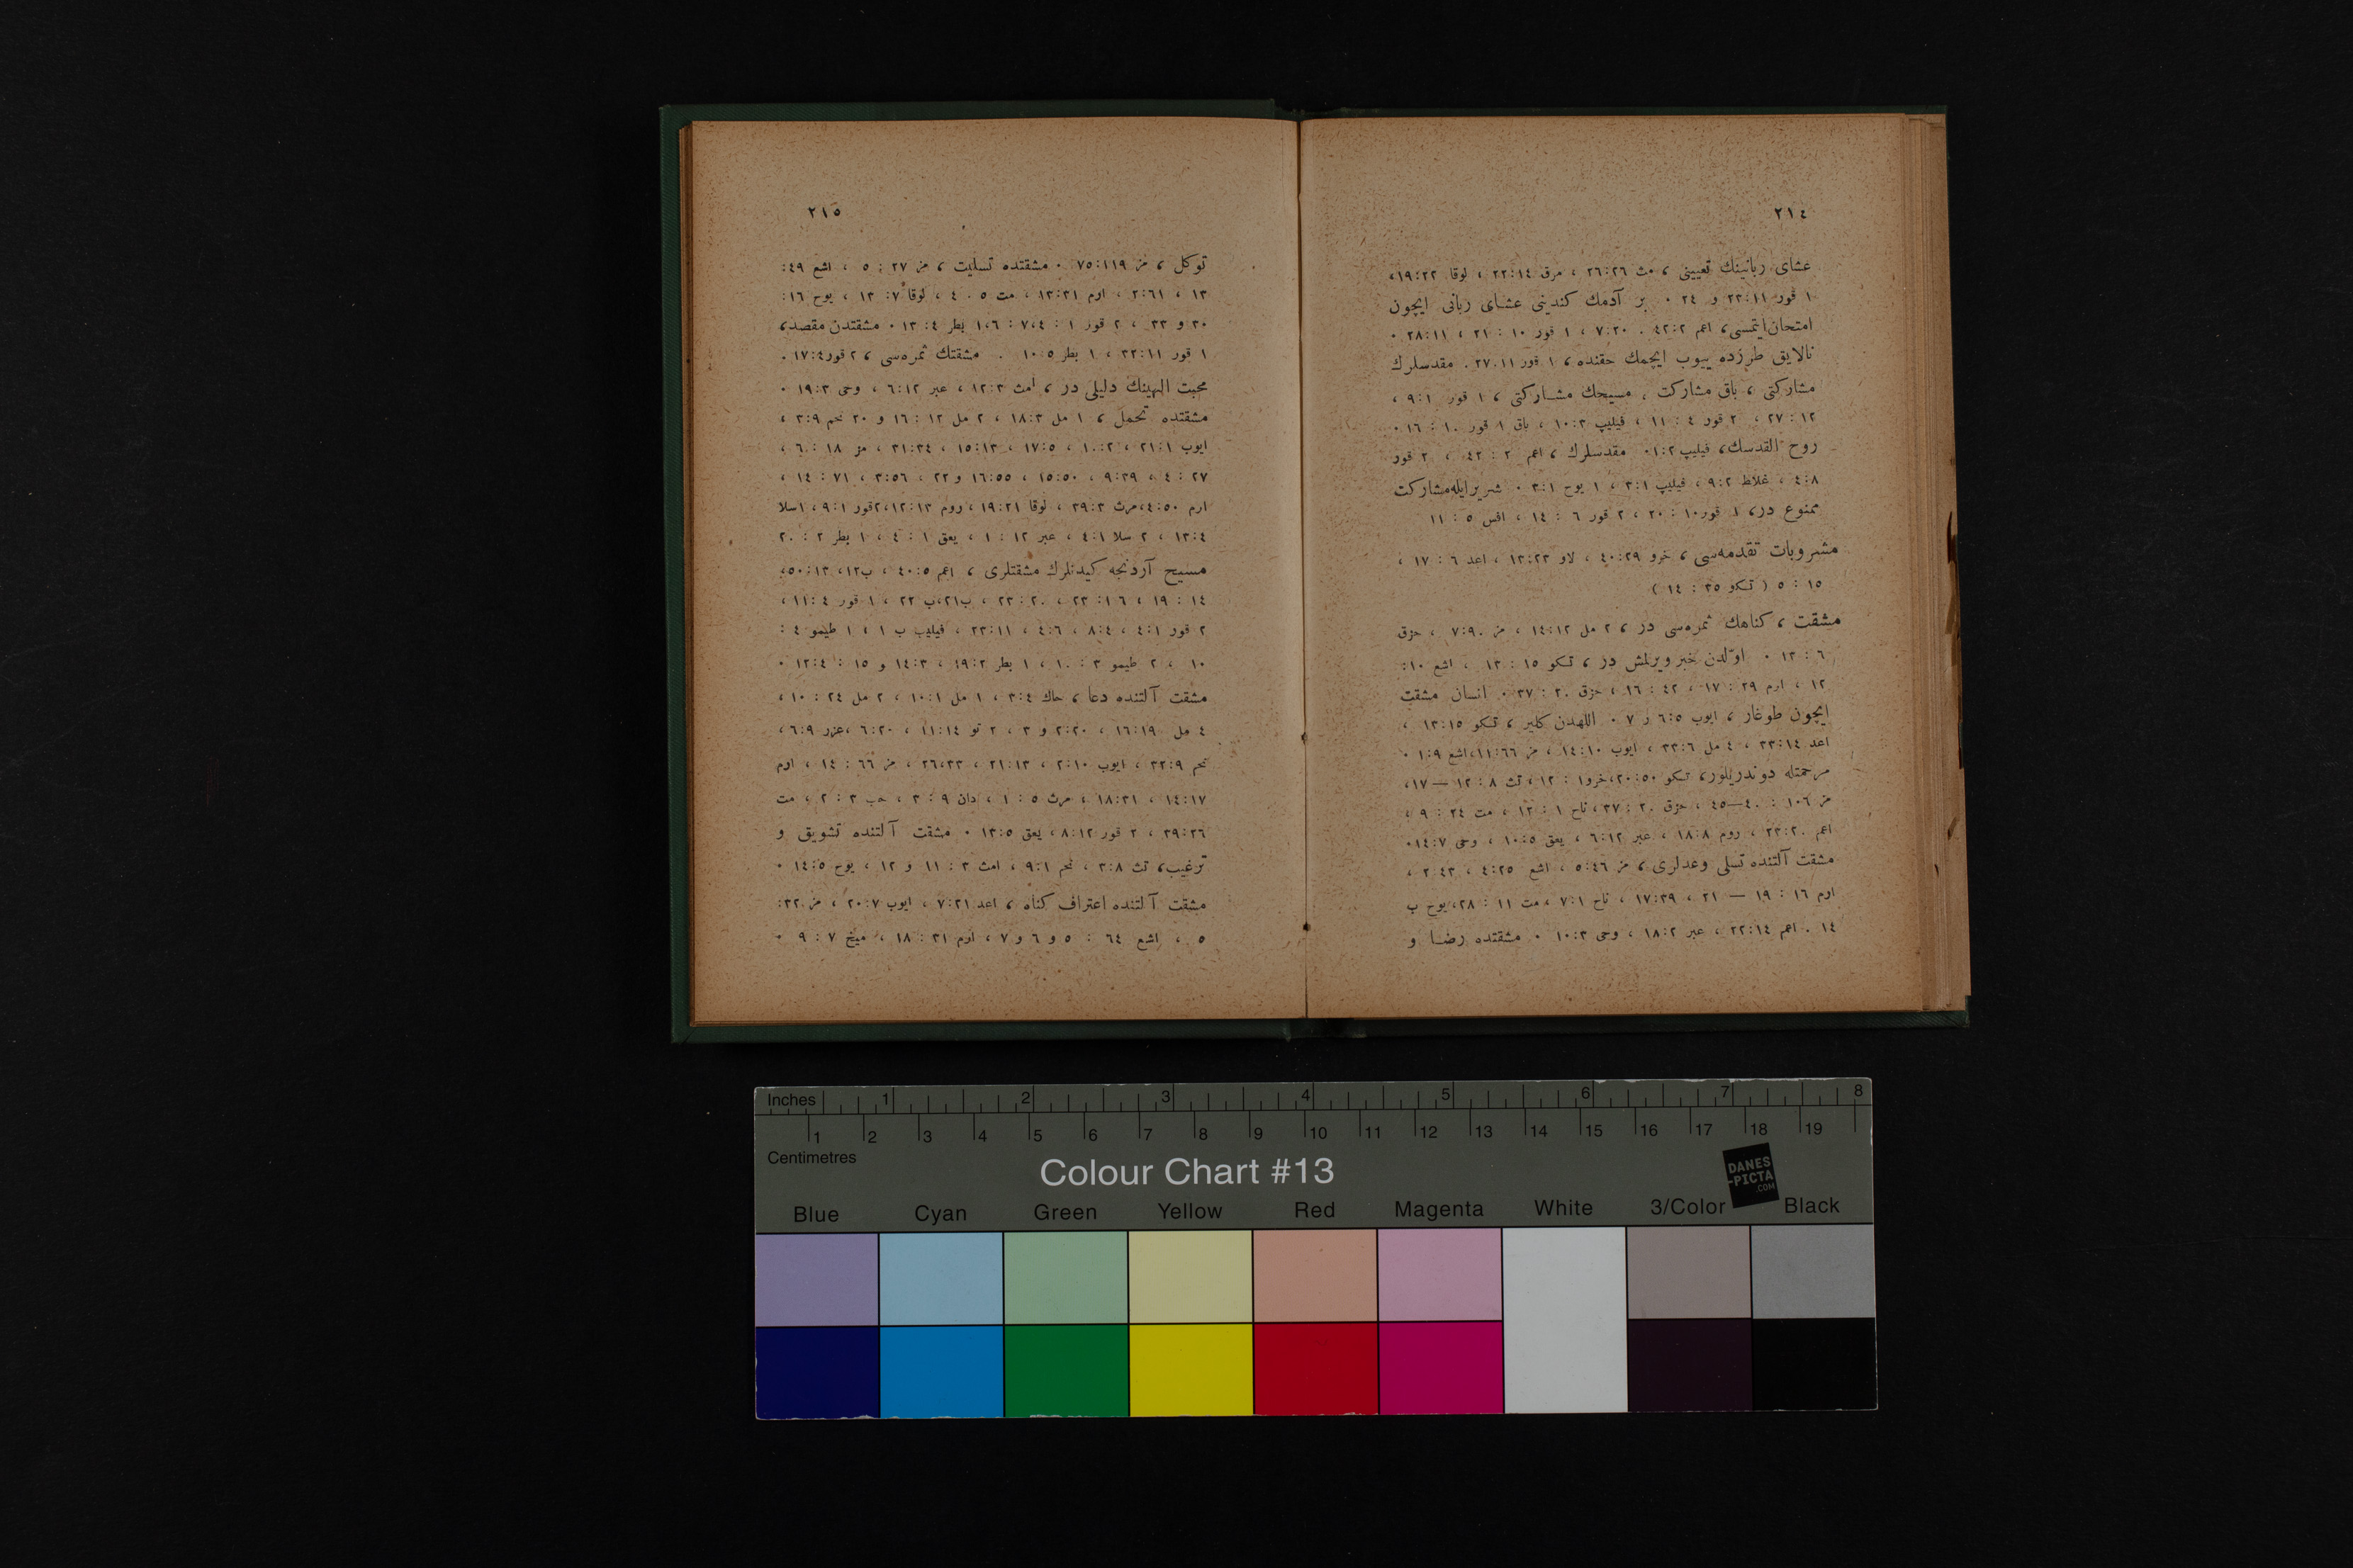 ٢١٤
عشای ربانینك تعیینی ، مث ٢٦:٢٦ ، مرق ٢٢:١٤ ، لوقا ١٩:٢٢،
١ قور ٢٣:١١ و ٢٤ ٠ بر آدمك كندینی عشای ربانی ایچون
امتحان ایتمسی، اعم ٤٢:٢ . ٧:٢٠ ، ١ قور ١٠ : ٢١ ، ٢٨:١١ ٠
نالایق طرزده ییوب ایچمك حقنده ، ١ قور ٢٧.١١ . مقدسلرك
مشاركتی ، باق مشاركت . مسیحك مشاركتی ، ١ قور ٩:١ ،
١٢ : ٢٧ ، ٢ قور ٤ : ١١ ، فیلیپ ١٠:٣ ، باق ١ قور ١٠ : ١٦ ٠
روح القدسك، فیلیپ ١:٢ ٠ مقدسلرك ، اعم ٢ : ٤٢ ، ٢ قور
٤:٨ ، غلاط ٩:٢ ، فیلیپ ٣:١ ، ١ یوح ٣:١ ٠ شریرایله مشاركت
ممنوع در، ١ قور ١٠ : ٢٠ ، ٢ قور ٦ : ١٤ ، افس ٥ : ١١
مشروبات تقدمه‌سی ، خرو ٤٠:٢٩ ، لاو ١٣:٢٣ ، اعد ٦ : ١٧ ،
١٥ : ٥ ( تكو ٣٥ : ١٤ )
مشقت ، كناهك ثمره‌سی در ، ٢ مل ١٤:١٢ ، مز ٧:٩٠ ، حزق
٦ : ١٣ ٠ اوّلدن خبر ویرلمش در ، تكو ١٥ : ١٣ ، اشع ١٠:
١٢ ، ارم ٢٩ : ١٧ ، ٤٢ : ١٦ ، حزق ٢٠ : ٣٧ ٠ انسان مشقت
ایچون طوغار ، ایوب ٦:٥ و ٧ ٠ اللهدن كلیر ، تكو ١٣:١٥ ،
اعد ٣٣:١٤ ، ٤ مل ٣٣:٦ ، ایوب ١٤:١٠ ، مز ١١:٦٦ ،اشع ١:٩ ٠
مرحمتله دوندریلور، تكو ٢٠:٥٠ ،خرو١ : ١٢ ، تث ٨ : ١٢ — ١٧،
مز ١٠٦ : ٤٠—٤٥ ، حزق ٢٠ : ٣٧ ، ناح ١ : ١٢ ، مت ٢٤ : ٩ ،
اعم ٢٣:٢٠ ، روم ١٨:٨ ، عبر ٦:١٢ ، یعق ١٠:٥ ، وحی ١٤:٧ ٠
مشقت آلتنده تسلی وعدلری ، مز ٥:٤٦ ، اشع ٤:٢٥ ، ٢:٤٣ ،
ارم ١٦ : ١٩ — ٢١ ، ١٧:٣٩ ، ناح ٧:١ ، مت ١١ : ٢٨، یوح ب
١٤ . اعم ٢٢:١٤ ، عبر ١٨:٢ ، وحی ١٠:٣ ٠ مشقتده رضا و
٢١٥
توكل ، مز ٧٥:١١٩ ٠ مشقتده تسلیت ، مز ٢٧ : ٥ ، اشع ٤٩:
١٣ ، ٢:٦١ ، ارم ١٣:٣١ ، مت ٥ . ٤ ، لوقا ٧: ١٣ ، یوح ١٦:
٢٠ و ٣٣ ، ٢ قور ١ : ٧،٤ : ١،٦ بطر ٤ : ١٣ ٠ مشقتدن مقصد،
١ قور ٣٢:١١ ، ١ بطر ١٠:٥ . مشقتك ثمره‌سی ، ٢ قور ١٧:٤ .
محبت الهینك دلیلی در ، امث ١٢:٣ ، عبر ٦:١٢ ، وحی ١٩:٣ ٠
مشقتده تحمل ، ١ مل ١٨:٣ ، ٢ مل ١٢ : ١٦ و ٢٠ نحم ٣:٩ ،
ایوب ٢١:١ ، ١٠:٢ ، ١٧:٥ ، ١٥:١٣ ، ٣١:٣٤ ، مز ١٨ : ٦ ،
٢٧ : ٤ ، ٩:٣٩ ، ١٥:٥٠ ، ١٦:٥٥ و ٢٢ ، ٣:٥٦ ، ٧١ : ١٤ ،
ارم ٤:٥٠ ،مرث ٣٩:٣ ، لوقا ١٩:٢١ ، روم ١٢:١٢ ،٢قور ٩:١ ، ١سلا
١٣:٤ ، ٢ سلا ٤:١ ، عبر ١٢ : ١ ، یعق ١ : ٤ ، ١ بطر ٢ : ٢٠
مسیح آردنجه كیدنلرك مشقتلری ، اعم ٤٠:٥ ، ب١٢، ٥٠:١٣،
١٤ : ١٩ ، ١٦ : ٢٣ ، ٢٠ : ٢٣ ، ب٢١،ب ٢٢ ، ١ قور ٤ :١١،
٢ قور ٤:١ ، ٨:٤ ، ٤:٦ ، ٢٣:١١ ، فیلیپ ب ١ ، ١ طیمو ٤ :
١٠ ، ٢ طیمو ٣ : ١٠ ، ١ بطر ١٩:٢ ، ١٤:٣ و ١٥ : ١٢:٤ ٠
مشقت آلتنده دعا ، حاك ٣:٤ ، ١ مل ١٠:١ ، ٢ مل ٢٤ : ١٠ ،
٤ مل ١٦:١٩ ، ٢:٢٠ و ٣ ، ٢ تو ١١:١٤ ، ٦:٢٠ ،عزر ٦:٩،
نحم ٣٢:٩ ، ایوب ٢:١٠ ، ٢١:١٣ ، ٢٦،٣٣ ، مز ٦٦ : ١٤ ، ارم
١٤:١٧ ، ١٨:٣١ ، مرث ٥ : ١ ، دان ٩ : ٣ ، حب ٣ : ٢ ، مت
٣٩:٢٦ ، ٢ قور ٨:١٢ ، یعق ١٣:٥ ٠ مشقت آلتنده تشویق و
ترغیب، تث ٣:٨ ، نحم ٩:١ ، امث ٣ : ١١ و ١٢ ، یوح ١٤:٥ ٠
مشقت آلتنده اعتراف كناه ، اعد ٧:٢١ ، ایوب ٢٠:٧ ، مز ٣٢:
٥ ، اشع ٦٤ : ٥ و ٦ و ٧ ، ارم ٣١ : ١٨ ، میخ ٧ : ٩ ٠
Inches 1 2 3 4 5 6 7 8
1 2 3 4 5 6 7 8 9 10 11 12 13 14 15 16 17 18 19
Centimetres
Colour Chart #13
DANES
-PICTA
.COM
Blue Cyan Green Yellow Red Magenta White 3/Color Black